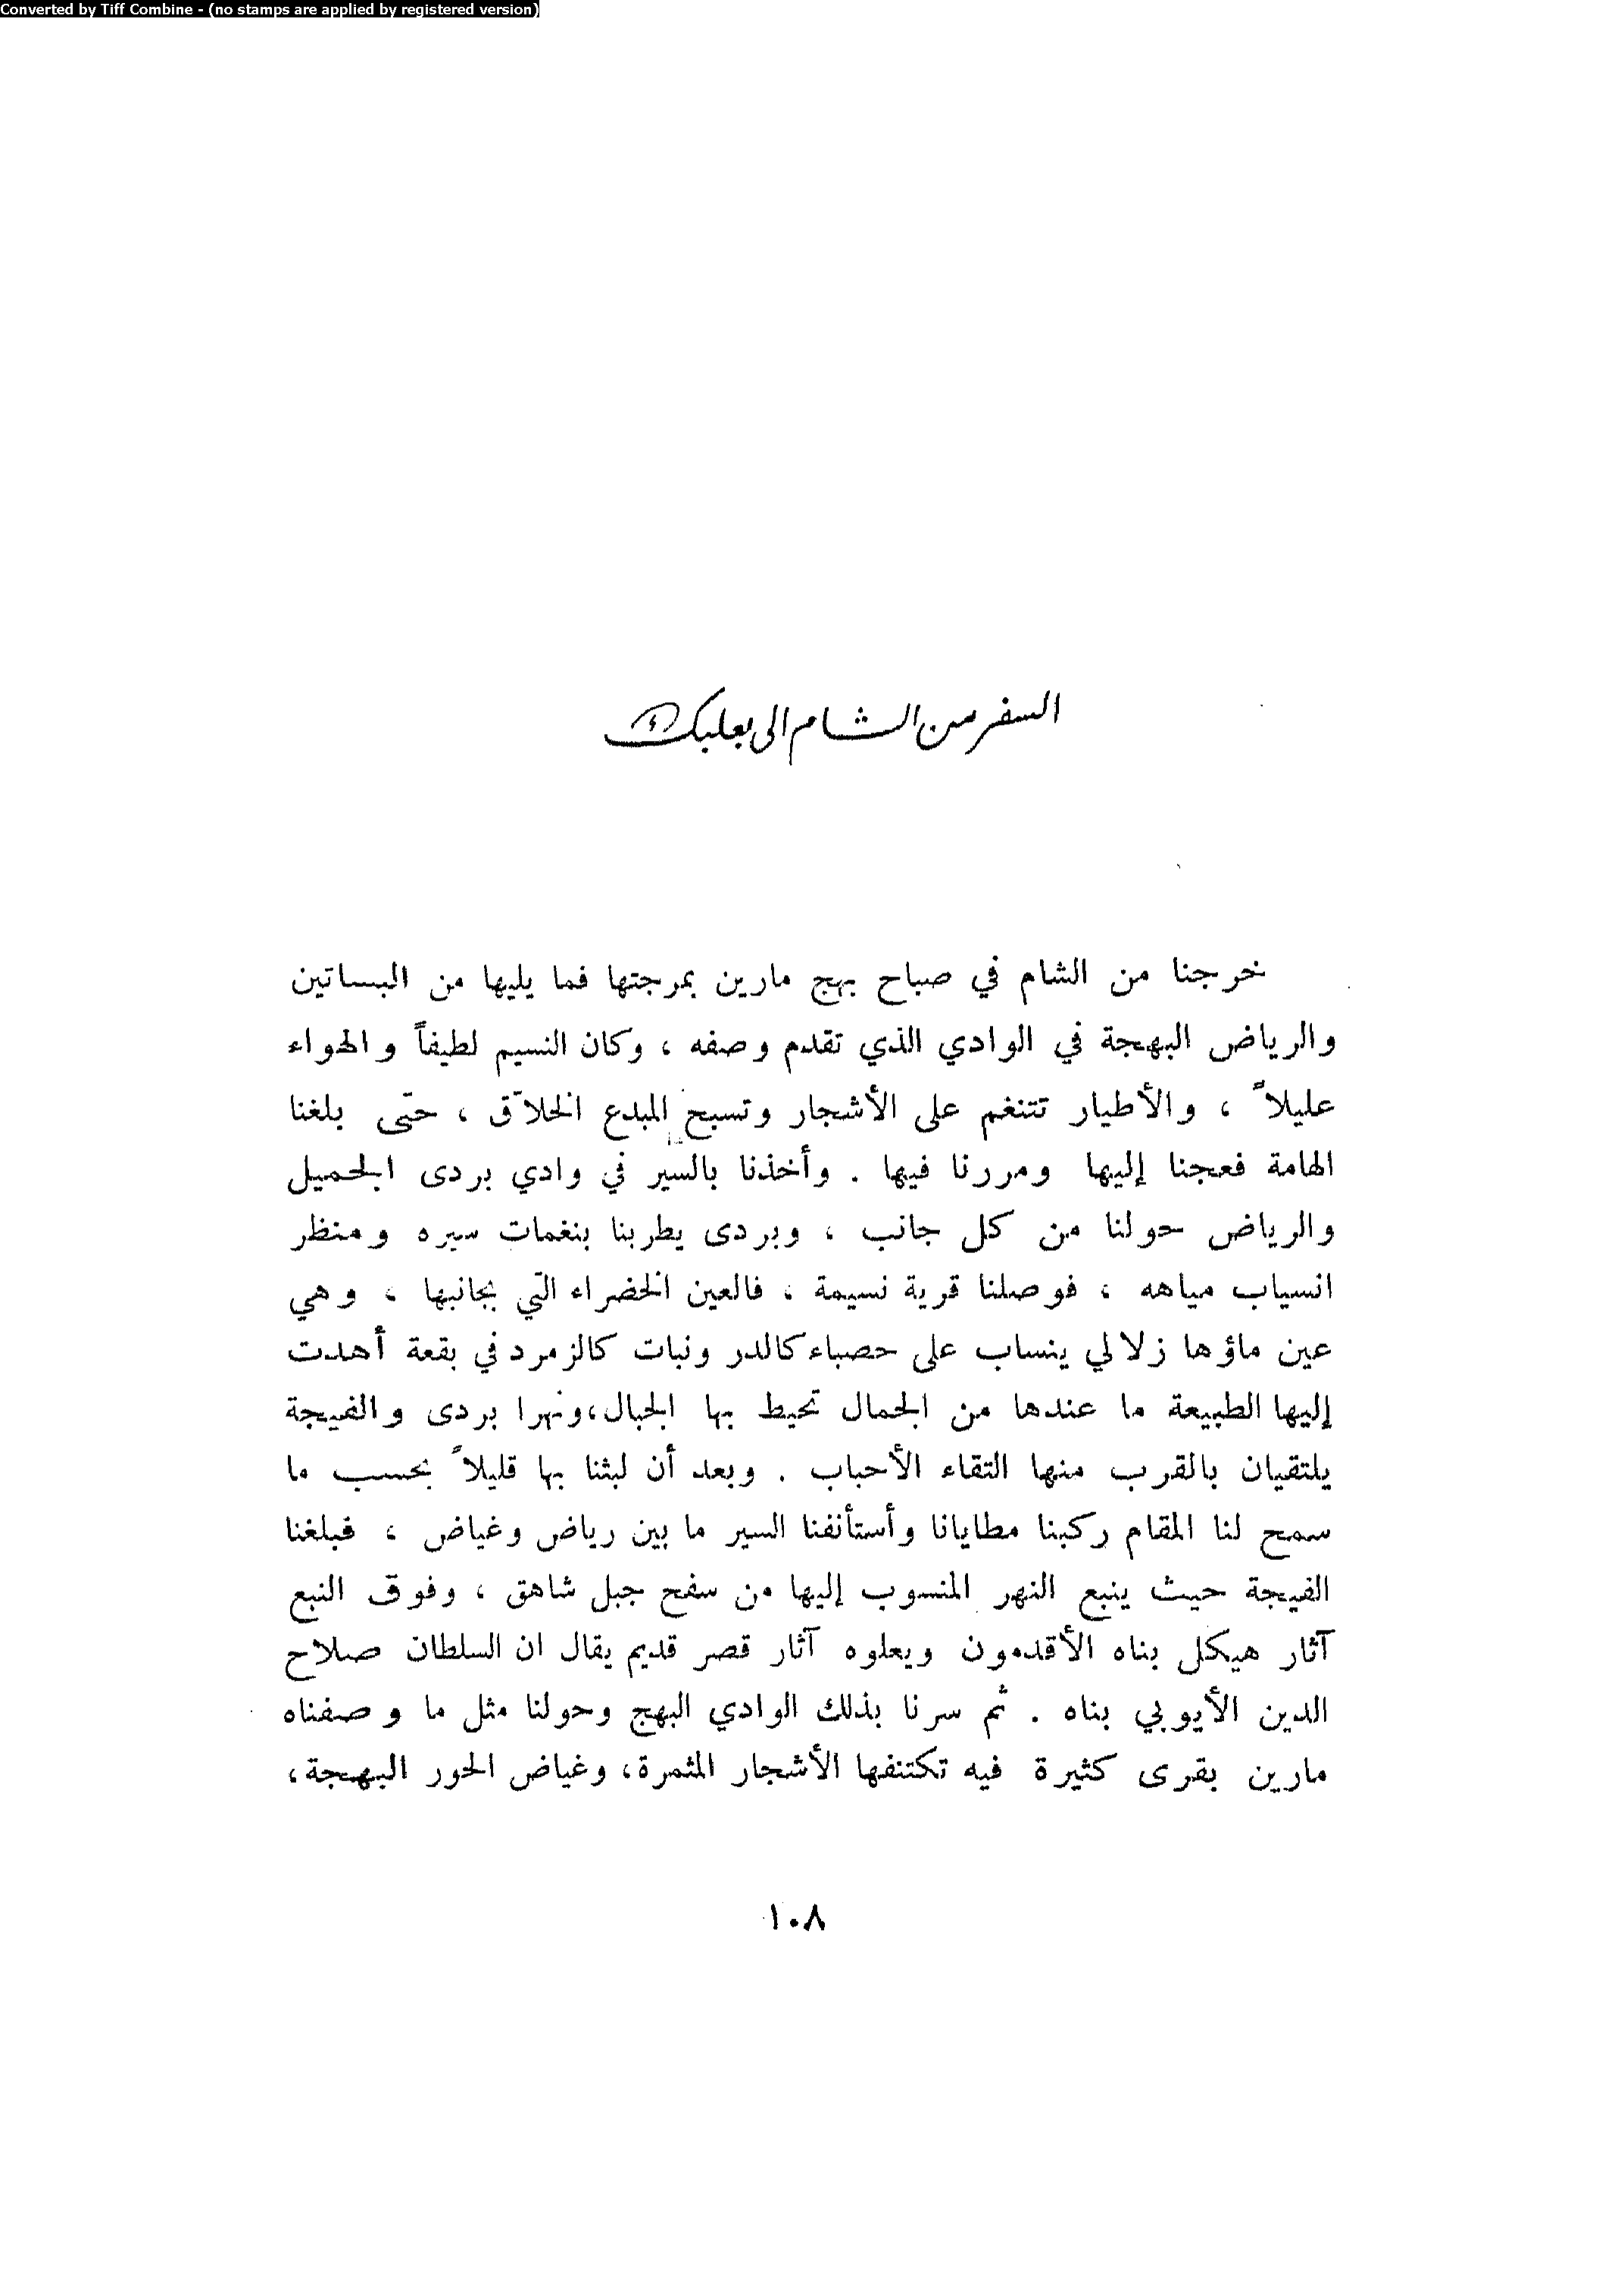 Converted by Tiff Combine - (no stamps are applied by registered version)
السفر من الشام الى بعلبك
خرجنا من الشام في صباح بهج مارين بمرجتها فما يليها من البساتين
والرياض البهجة في الوادي الذي تقدم وصفه ، وكان النسيم لطيفاً والهواء
عليلاً ، والأطيار تتنغم على الأشجار وتسبح المبدع الخلاّق ، حتى بلغنا
الهامة فعجنا إليها ومررنا فيها . وأخذنا بالسير في وادي بردى الجميل
والرياض حولنا من كل جانب ، وبردى يطربنا بنغمات سيره ومنظر
انسياب مياهه ، فوصلنا قرية نسيمة ، فالعين الخضراء التي بجانبها ، وهي
عين ماؤها زلالي ينساب على حصباء كالدر ونبات كالزمرد في بقعة أهدت
إليها الطبيعة ما عندها من الجمال تحيط بها الجبال، ونهرا بردى والفيجة
يلتقيان بالقرب منها التقاء الأحباب . وبعد أن لبثنا بها قليلاً بحسب ما
سمح لنا المقام ركبنا مطايانا وأستأنفنا السير ما بين رياض وغياض ، فبلغنا
الفيجة حيث ينبع النهر المنسوب إليها من سفح جبل شاهق ، وفوق النبع
آثار هيكل بناه الأقدمون ويعلوه آثار قصر قديم يقال ان السلطان صلاح
الدين الأيوبي بناه . ثم سرنا بذلك الوادي البهج وحولنا مثل ما وصفناه
مارين بقرى كثيرة فيه تكتنفها الأشجار المثمرة، وغياض الحور البهجة،
١٠٨